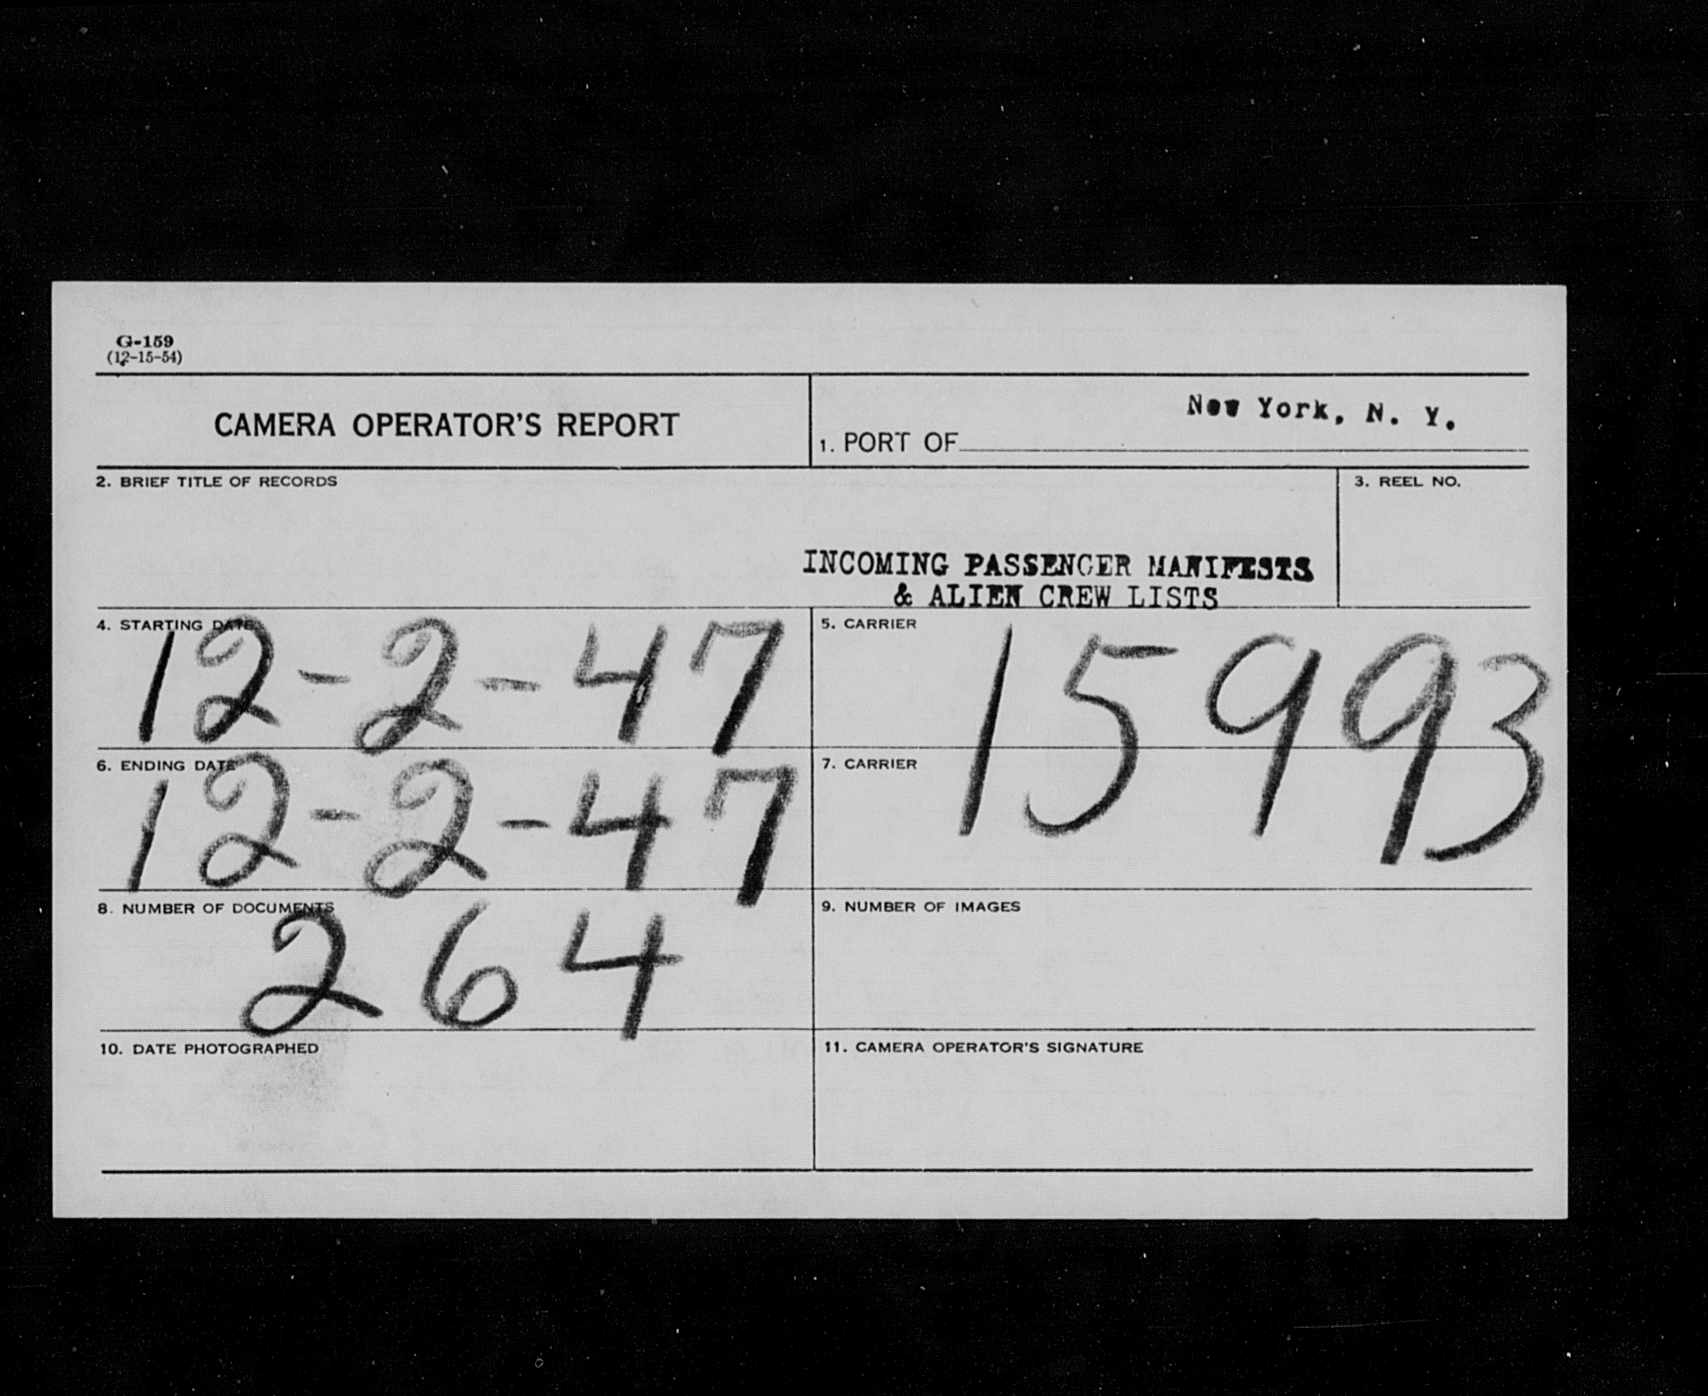 G-159
(12-15-54)
CAMERA OPERATOR'S REPORT
1. PORT OF New York, N. Y.
2. BRIEF TITLE OF RECORDS
3. REEL NO.
INCOMING PASSENGER MANIFESTS
& ALIEN CREW LISTS
4. STARTING DATE
12-2-47
5. CARRIER
15993
6. ENDING DATE
12-2-47
7. CARRIER
8. NUMBER OF DOCUMENTS
264
9. NUMBER OF IMAGES
10. DATE PHOTOGRAPHED
11. CAMERA OPERATOR'S SIGNATURE